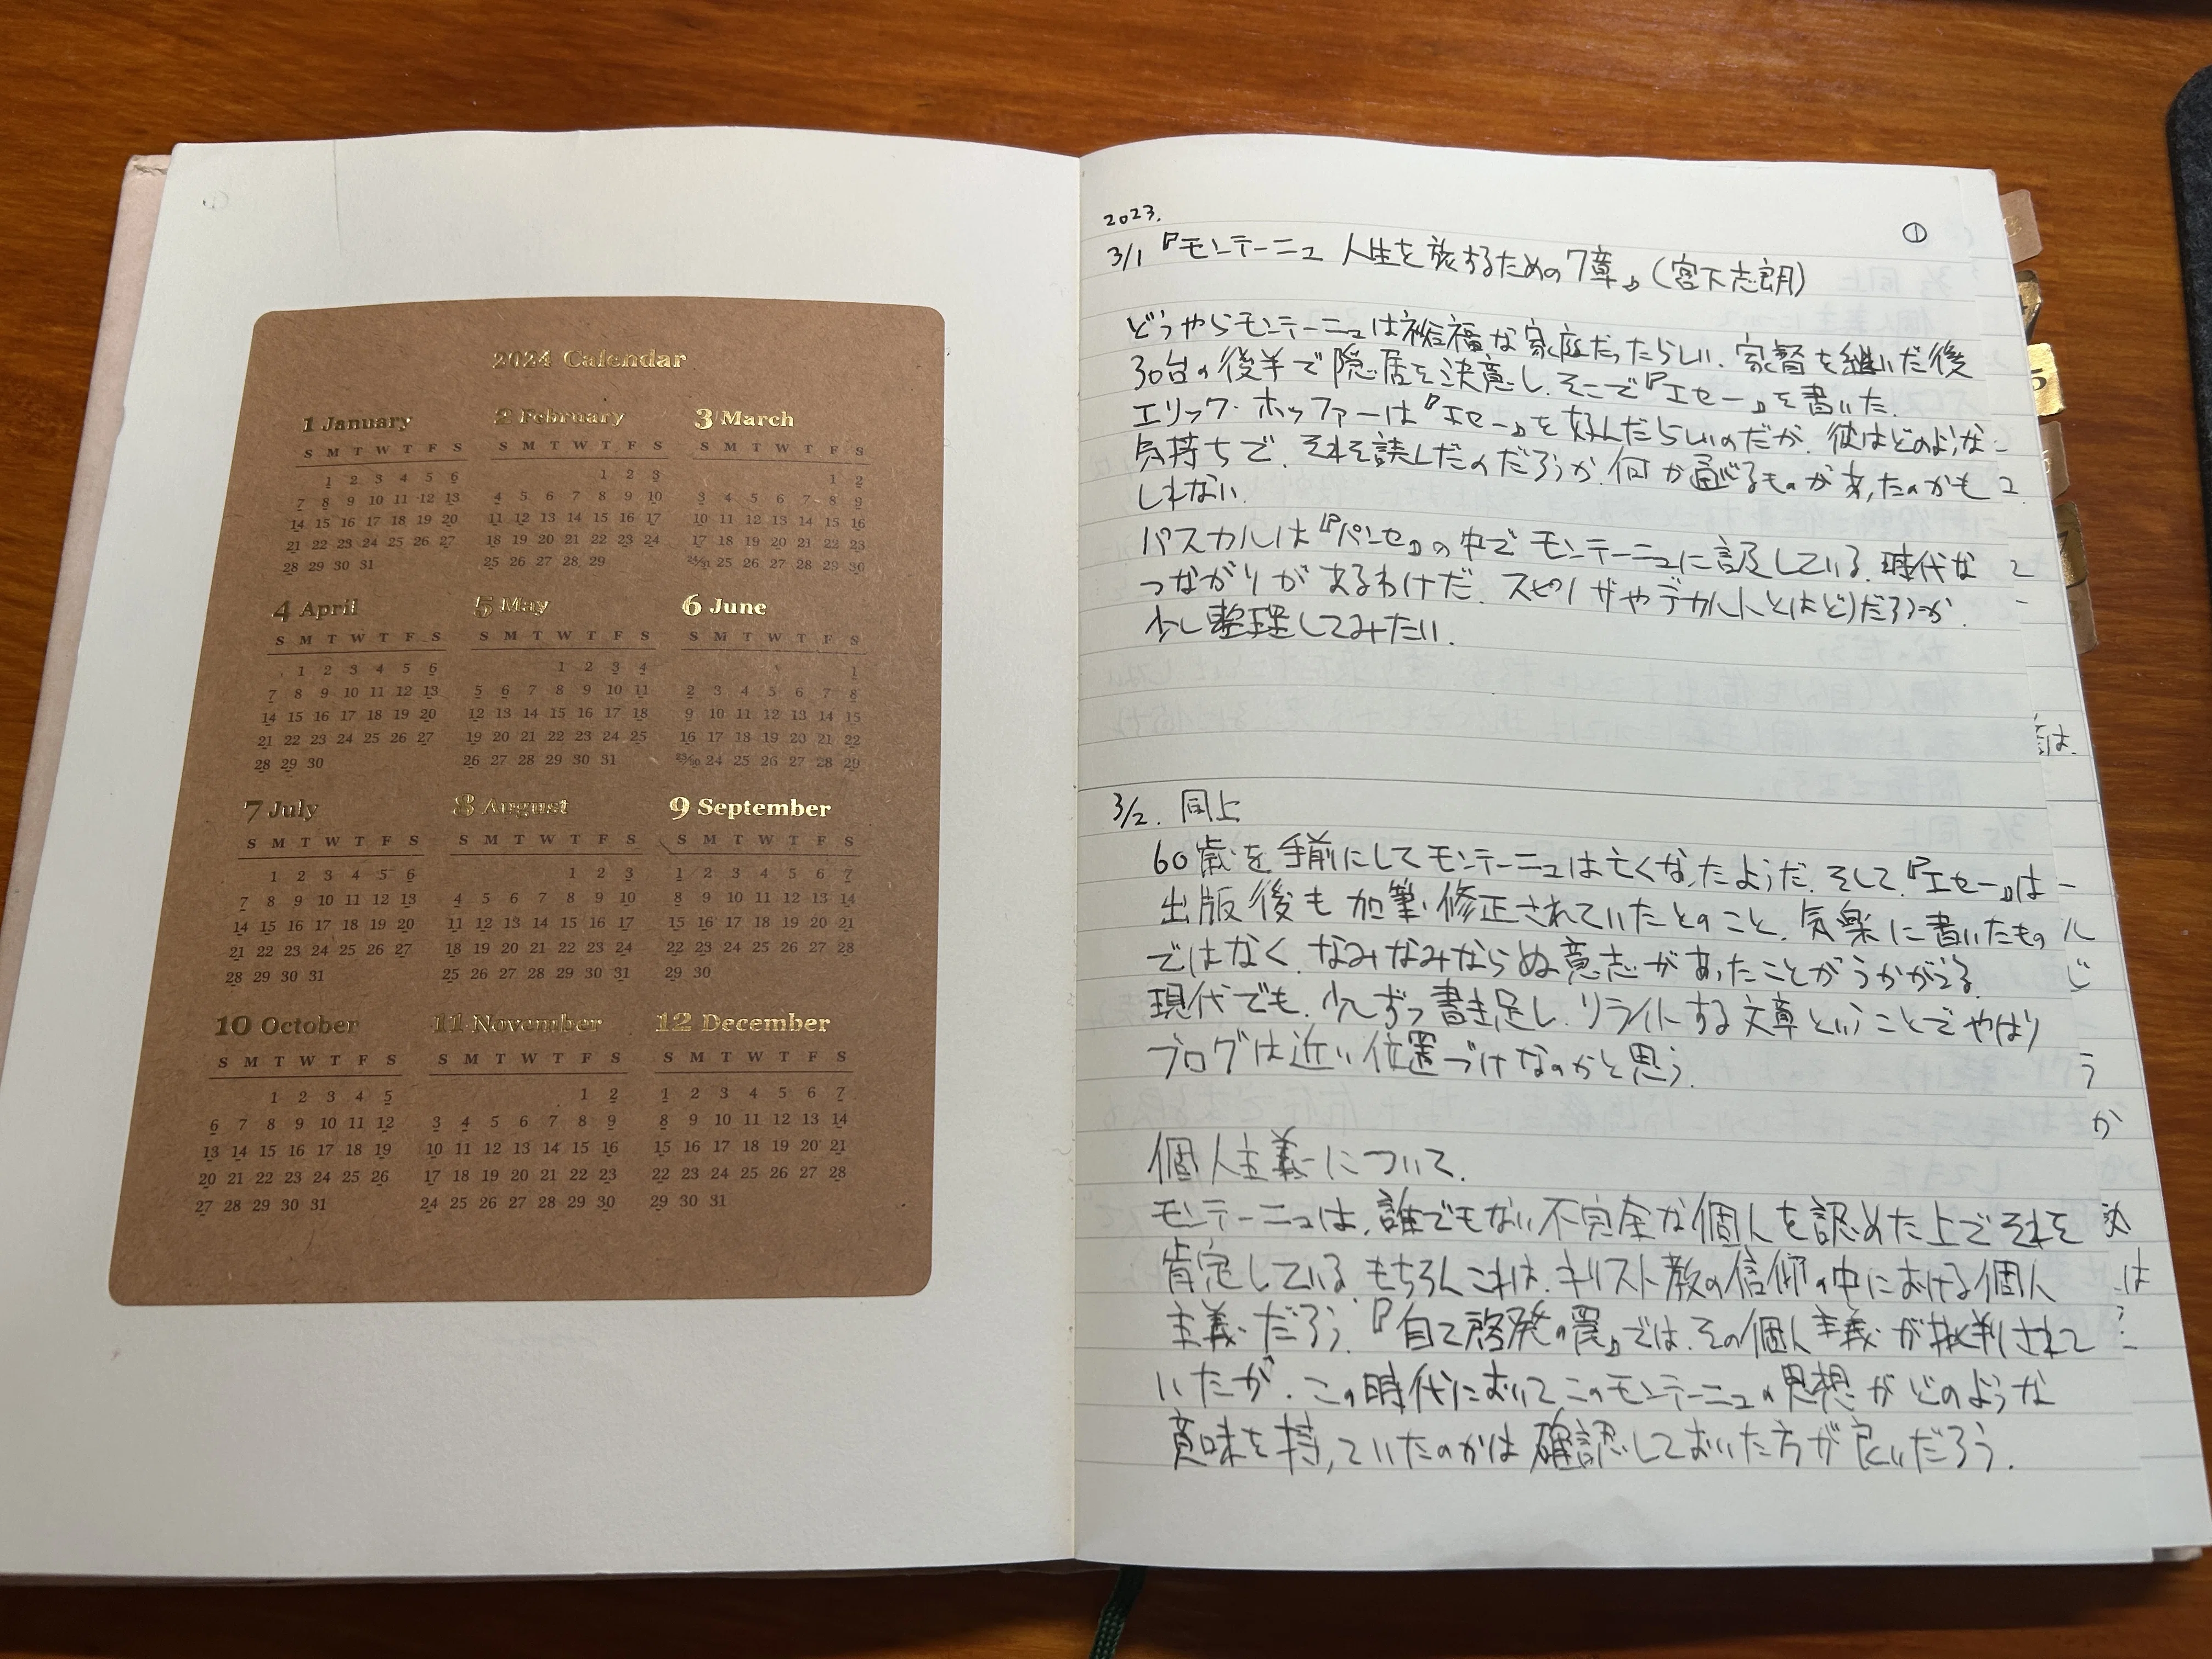 2024 Calendar
1 January
S M T W T F S
1 2 3 4 5 6
7 8 9 10 11 12 13
14 15 16 17 18 19 20
21 22 23 24 25 26 27
28 29 30 31
2 February
S M T W T F S
1 2 3
4 5 6 7 8 9 10
11 12 13 14 15 16 17
18 19 20 21 22 23 24
25 26 27 28 29
3 March
S M T W T F S
1 2
3 4 5 6 7 8 9
10 11 12 13 14 15 16
17 18 19 20 21 22 23
24/31 25 26 27 28 29 30
4 April
S M T W T F S
1 2 3 4 5 6
7 8 9 10 11 12 13
14 15 16 17 18 19 20
21 22 23 24 25 26 27
28 29 30
5 May
S M T W T F S
1 2 3 4
5 6 7 8 9 10 11
12 13 14 15 16 17 18
19 20 21 22 23 24 25
26 27 28 29 30 31
6 June
S M T W T F S
1
2 3 4 5 6 7 8
9 10 11 12 13 14 15
16 17 18 19 20 21 22
23/30 24 25 26 27 28 29
7 July
S M T W T F S
1 2 3 4 5 6
7 8 9 10 11 12 13
14 15 16 17 18 19 20
21 22 23 24 25 26 27
28 29 30 31
8 August
S M T W T F S
1 2 3
4 5 6 7 8 9 10
11 12 13 14 15 16 17
18 19 20 21 22 23 24
25 26 27 28 29 30 31
9 September
S M T W T F S
1 2 3 4 5 6 7
8 9 10 11 12 13 14
15 16 17 18 19 20 21
22 23 24 25 26 27 28
29 30
10 October
S M T W T F S
1 2 3 4 5
6 7 8 9 10 11 12
13 14 15 16 17 18 19
20 21 22 23 24 25 26
27 28 29 30 31
11 November
S M T W T F S
1 2
3 4 5 6 7 8 9
10 11 12 13 14 15 16
17 18 19 20 21 22 23
24 25 26 27 28 29 30
12 December
S M T W T F S
1 2 3 4 5 6 7
8 9 10 11 12 13 14
15 16 17 18 19 20 21
22 23 24 25 26 27 28
29 30 31
2023.
①
3/1『モンテーニュ 人生を旅するための7章』(宮下志朗)
どうやらモンテーニュは裕福な家庭だったらしい. 家督を継いだ後
30台の後半で隠居を決意し. そこで『エセー』を書いた.
エリック・ホッファーは『エセー』を好んだらしいのだが. 彼はどのような
気持ちで. それを読んだのだろうか. 何か通ずるものがあったのかも
しれない.
パスカルは『パンセ』の中でモンテーニュに言及している. 時代な
つながりがあるわけだ. スピノザやデカルトとはどうだろうか.
少し整理してみたい.
3/2. 同上
60歳を手前にしてモンテーニュは亡くなったようだ. そして.『エセー』は
出版後も加筆・修正されていたとのこと. 気楽に書いたもの
ではなく. なみなみならぬ意志があったことがうかがえる.
現代でも. 少しずつ書き足し. リライトする文章ということでやはり
ブログは近い位置づけなのかと思う.
個人主義について.
モンテーニュは, 誰でもない不完全な個人を認めた上でそれを
肯定している. もちろんこれは. キリスト教の信仰の中における個人
主義だろう.『自己啓発の罠』では. その個人主義が批判されて
いたが. この時代においてこのモンテーニュの思想がどのような
意味を持っていたのかは確認しておいた方が良いだろう.
5